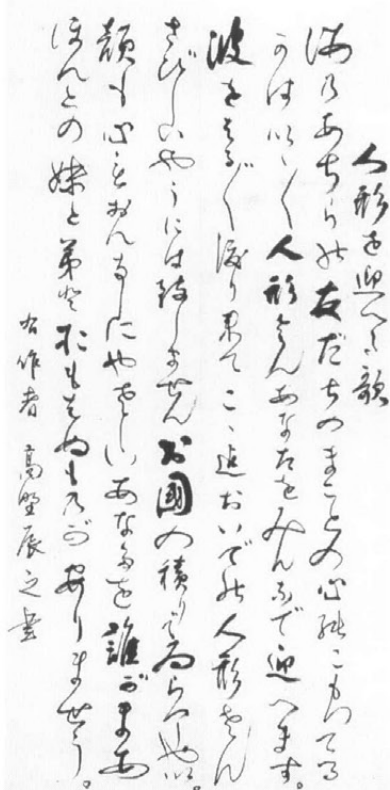 人形を迎へる歌
海のあちらの友だちのまことの心のこもつてる
かはいゝ〳〵人形さんあなたをみんなで迎へます。
波をはる〴〵渡り来てこゝ迄おいでの人形さん
さびしいやうには致しませんお國の積りでゐらつしやい。
顔も心もおんなじにやさしいあなたを誰がまあ
ほんとの妹と弟とおもはぬものが有りませう。
右作者 高野辰之書